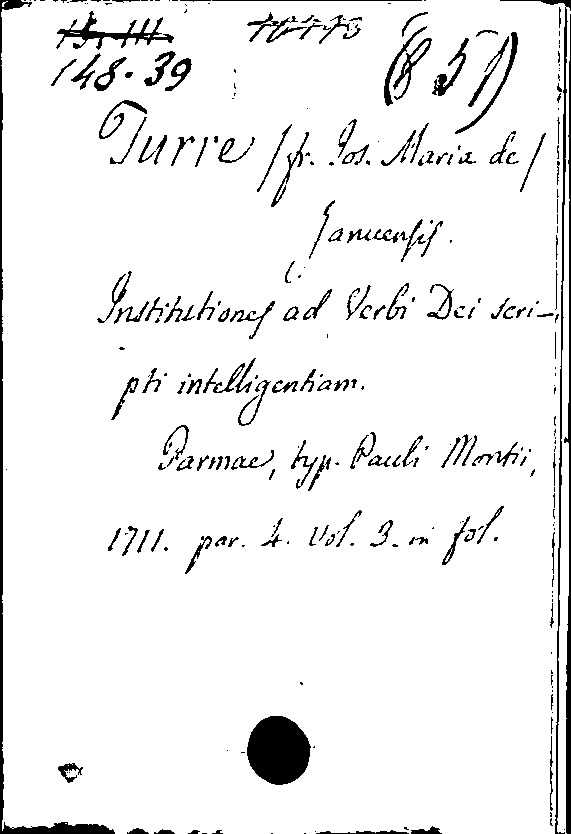 15. III 10443
148.39 (851)
Turre /fr. Jos. Maria de/
Januensis.
Institutiones ad Verbi Dei scri-
pti intelligentiam.
Parmae, typ. Pauli Montii,
1711. par. 4. Vol. 3. in fol.